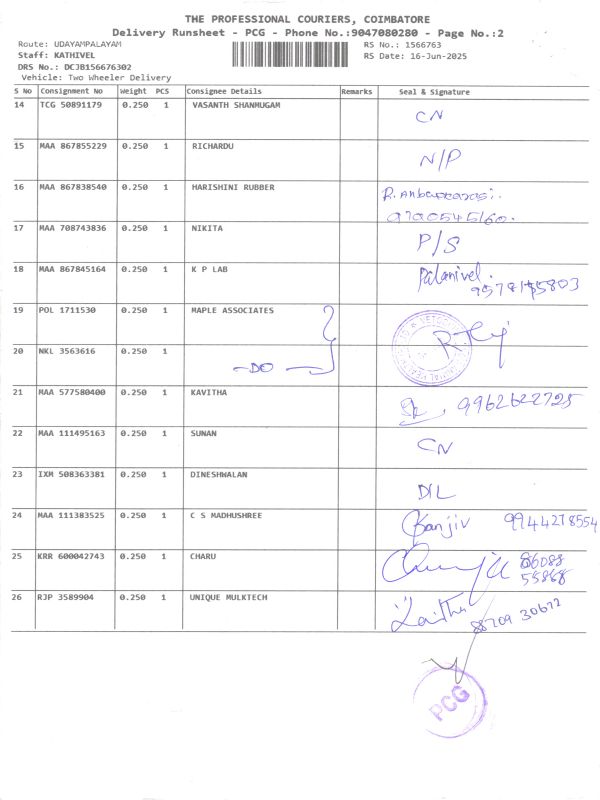 THE PROFESSIONAL COURIERS, COIMBATORE
Delivery Runsheet - PCG - Phone No.:9047080280 - Page No.:2
Route: UDAYAMPALAYAM
RS No.: 1566763
Staff: KATHIVEL
RS Date: 16-Jun-2025
DRS No.: DCJB156676302
Vehicle: Two Wheeler Delivery
S No Consignment No Weight PCS Consignee Details Remarks Seal & Signature
14 TCG 50891179 0.250 1 VASANTH SHANMUGAM CN
15 MAA 867855229 0.250 1 RICHARDU N/P
16 MAA 867838540 0.250 1 HARISHINI RUBBER
17 MAA 708743836 0.250 1 NIKITA P/S
18 MAA 867845164 0.250 1 K P LAB Palanivel.
19 POL 1711530 0.250 1 MAPLE ASSOCIATES
20 NKL 3563616 0.250 1 -DO-
21 MAA 577580400 0.250 1 KAVITHA 9962622725
22 MAA 111495163 0.250 1 SUNAN CN
23 IXM 508363381 0.250 1 DINESHWALAN D/L
24 MAA 111383525 0.250 1 C S MADHUSHREE Sanjiv 9944278554
25 KRR 600042743 0.250 1 CHARU 86088
55868
26 RJP 3589904 0.250 1 UNIQUE MULKTECH 88709 30672
PCG